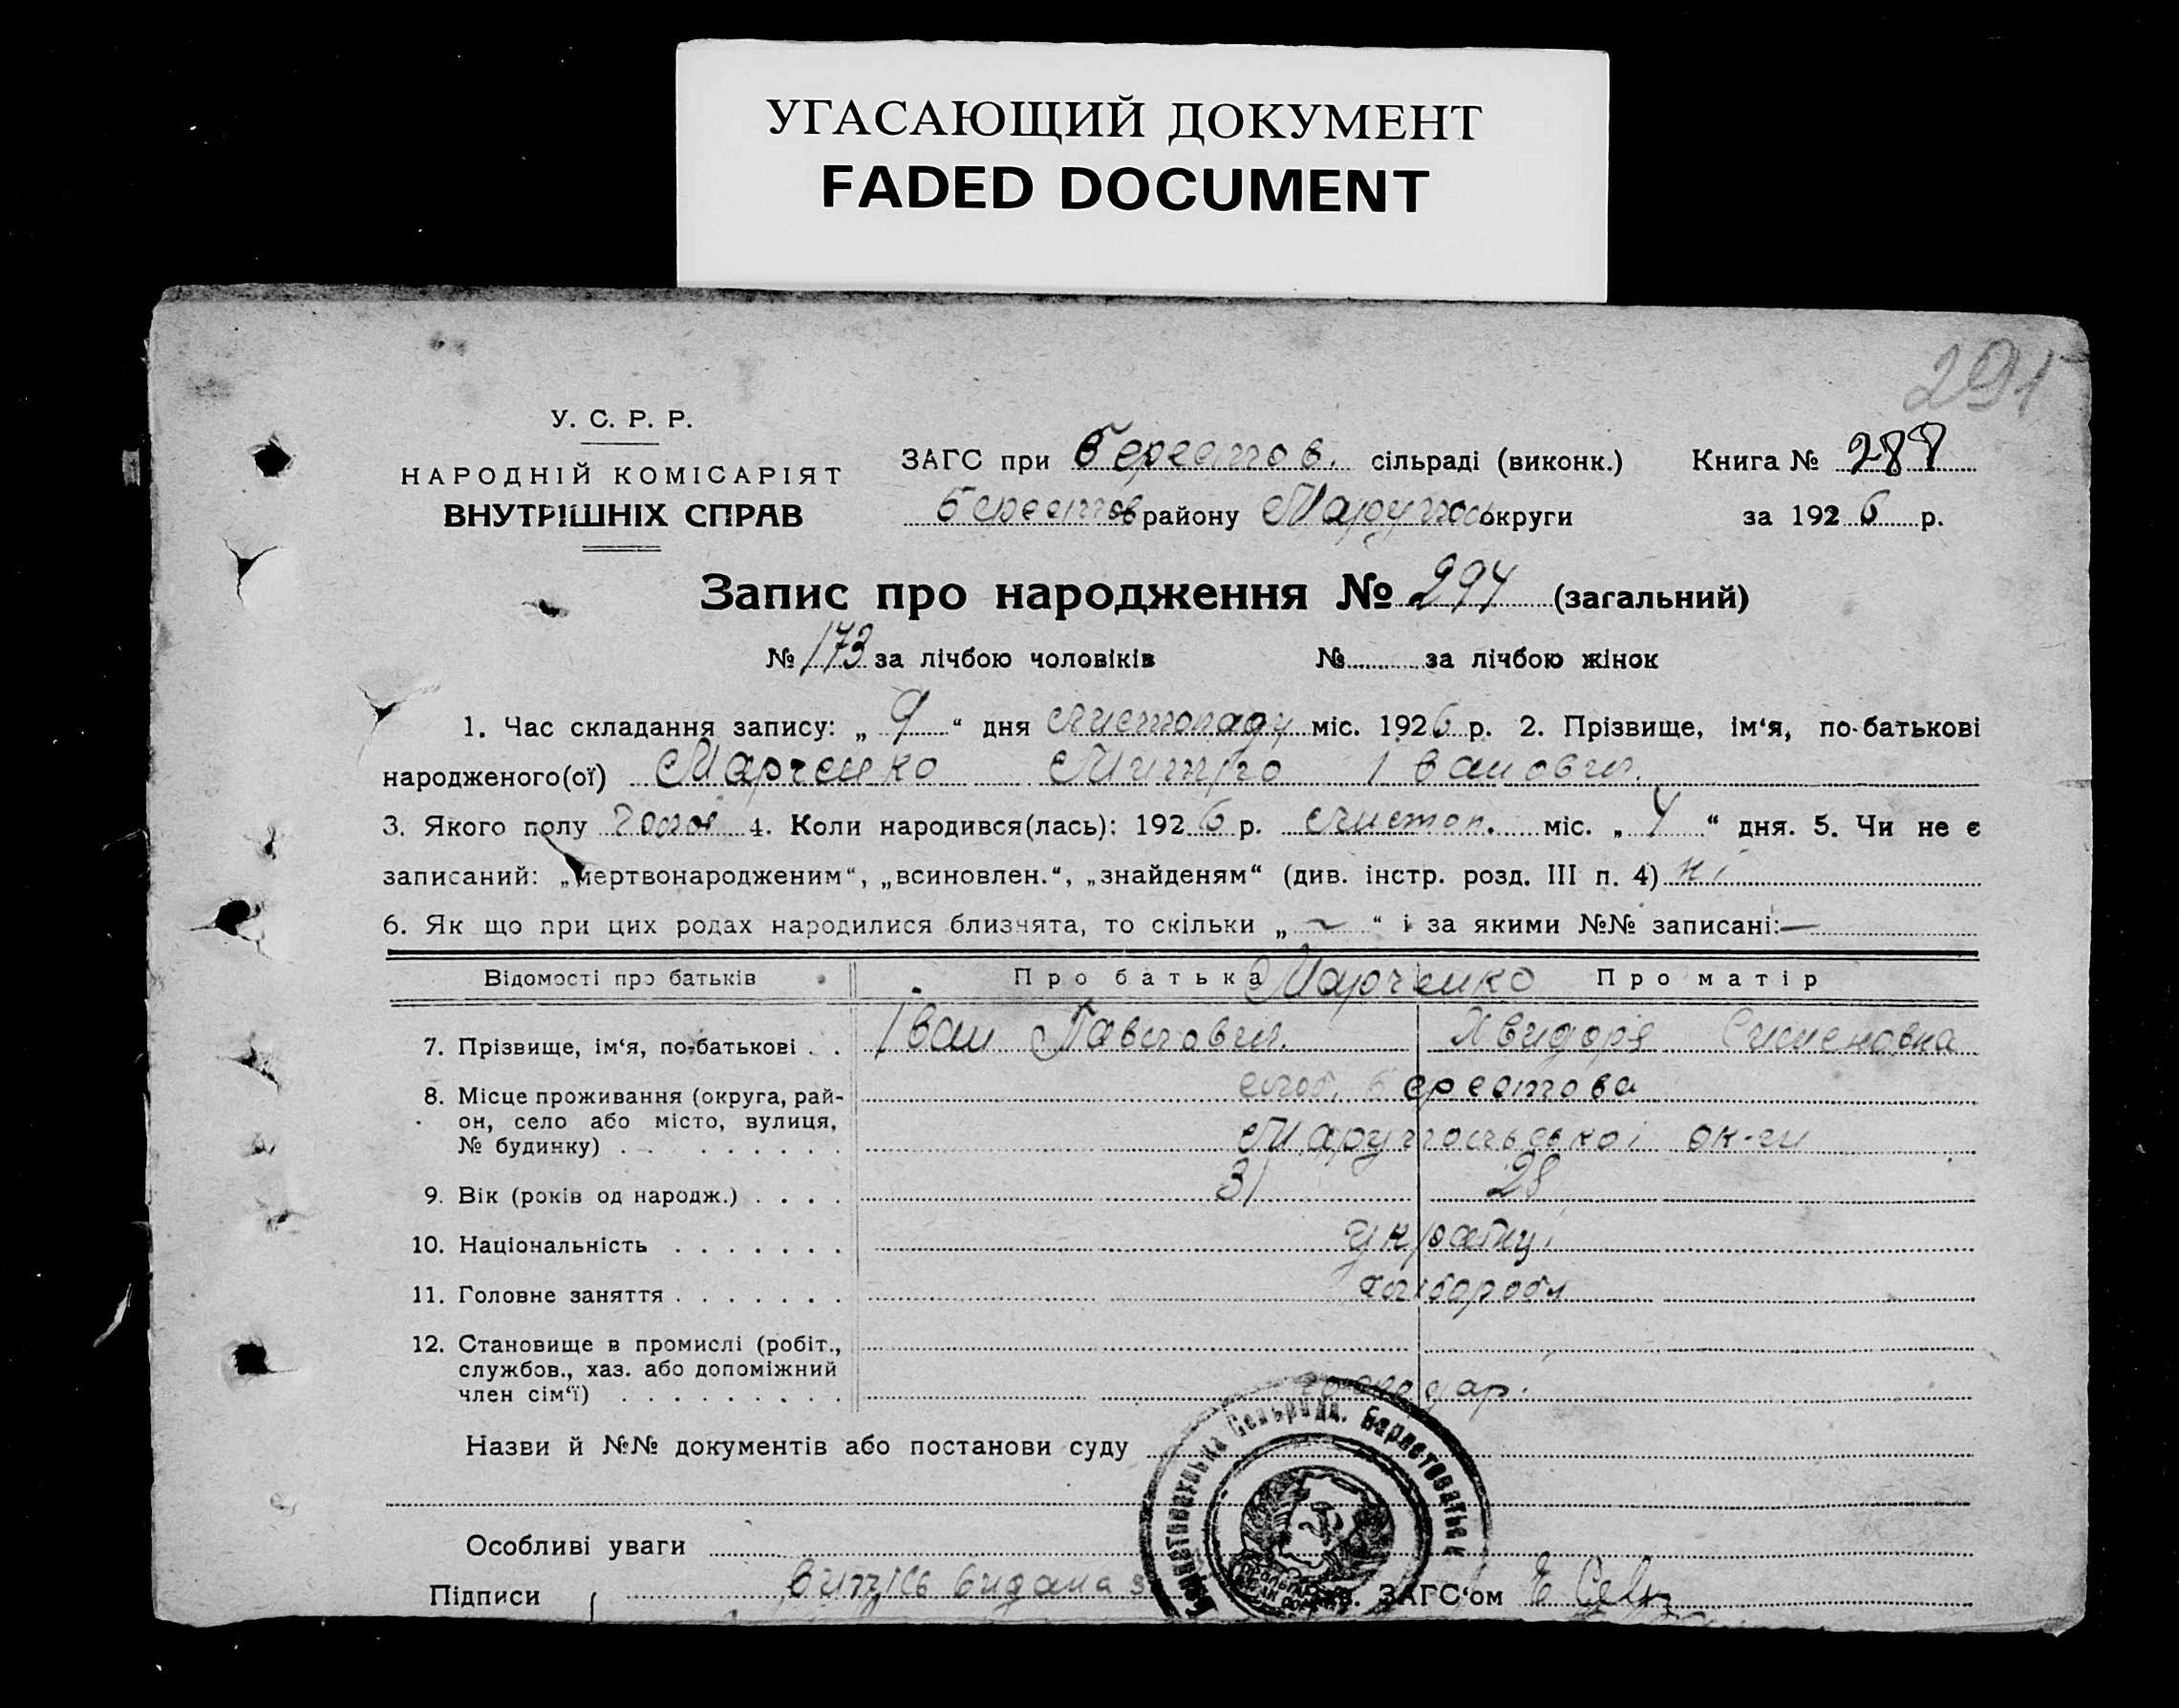 УГАСАЮЩИЙ ДОКУМЕНТ
FADED DOCUMENT
291
У. С. Р. Р.
НАРОДНІЙ КОМІСАРІЯТ
ВНУТРІШНІХ СПРАВ
ЗАГС при Берестов. сільраді (виконк.) Книга № 288
Берестов району Маруполь округи за 1926 р.
Запис про народження № 294 (загальний)
№ 173 за лічбою чоловіків № за лічбою жінок
1. Час складання запису: „ 9 “ дня листопаду міс. 1926 р. 2. Прізвище, ім‘я, по-батькові
народженого(ої) Марченко Митро Іванович.
3. Якого полу чолов 4. Коли народився(лась): 1926 р. листоп. міс. „ 4 “ дня. 5. Чи не є
записаний: „мертвонародженим“, „всиновлен.“, „знайденям“ (див. інстр. розд. III п. 4) ні
6. Як що при цих родах народилися близнята, то скільки „ ~ “ і за якими №№ записані: —
Відомості про батьків Про батька Марченко Про матір
7. Прізвище, ім‘я, по-батькові . . Іван Павлович. Хвидоря Семеновна
8. Місце проживання (округа, рай-
он, село або місто, вулиця,
№ будинку) . . . . . . . . .
слоб. Берестова
Марупольської ок-ги
9. Вік (років од народж.) . . . . 31 28
10. Національність . . . . . . . українці
11. Головне заняття . . . . . . . хлібороби
12. Становище в промислі (робіт.,
службов., хаз. або допоміжний
член сім‘ї) . . . . . . . . . господар.
Назви й №№ документів або постанови суду
Особливі уваги
Підписи Витпісь видана з Зав. ЗАГС‘ом